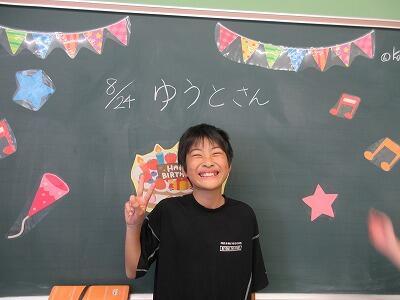 8/24 ゆうとさん
HAPPY
BIRTH